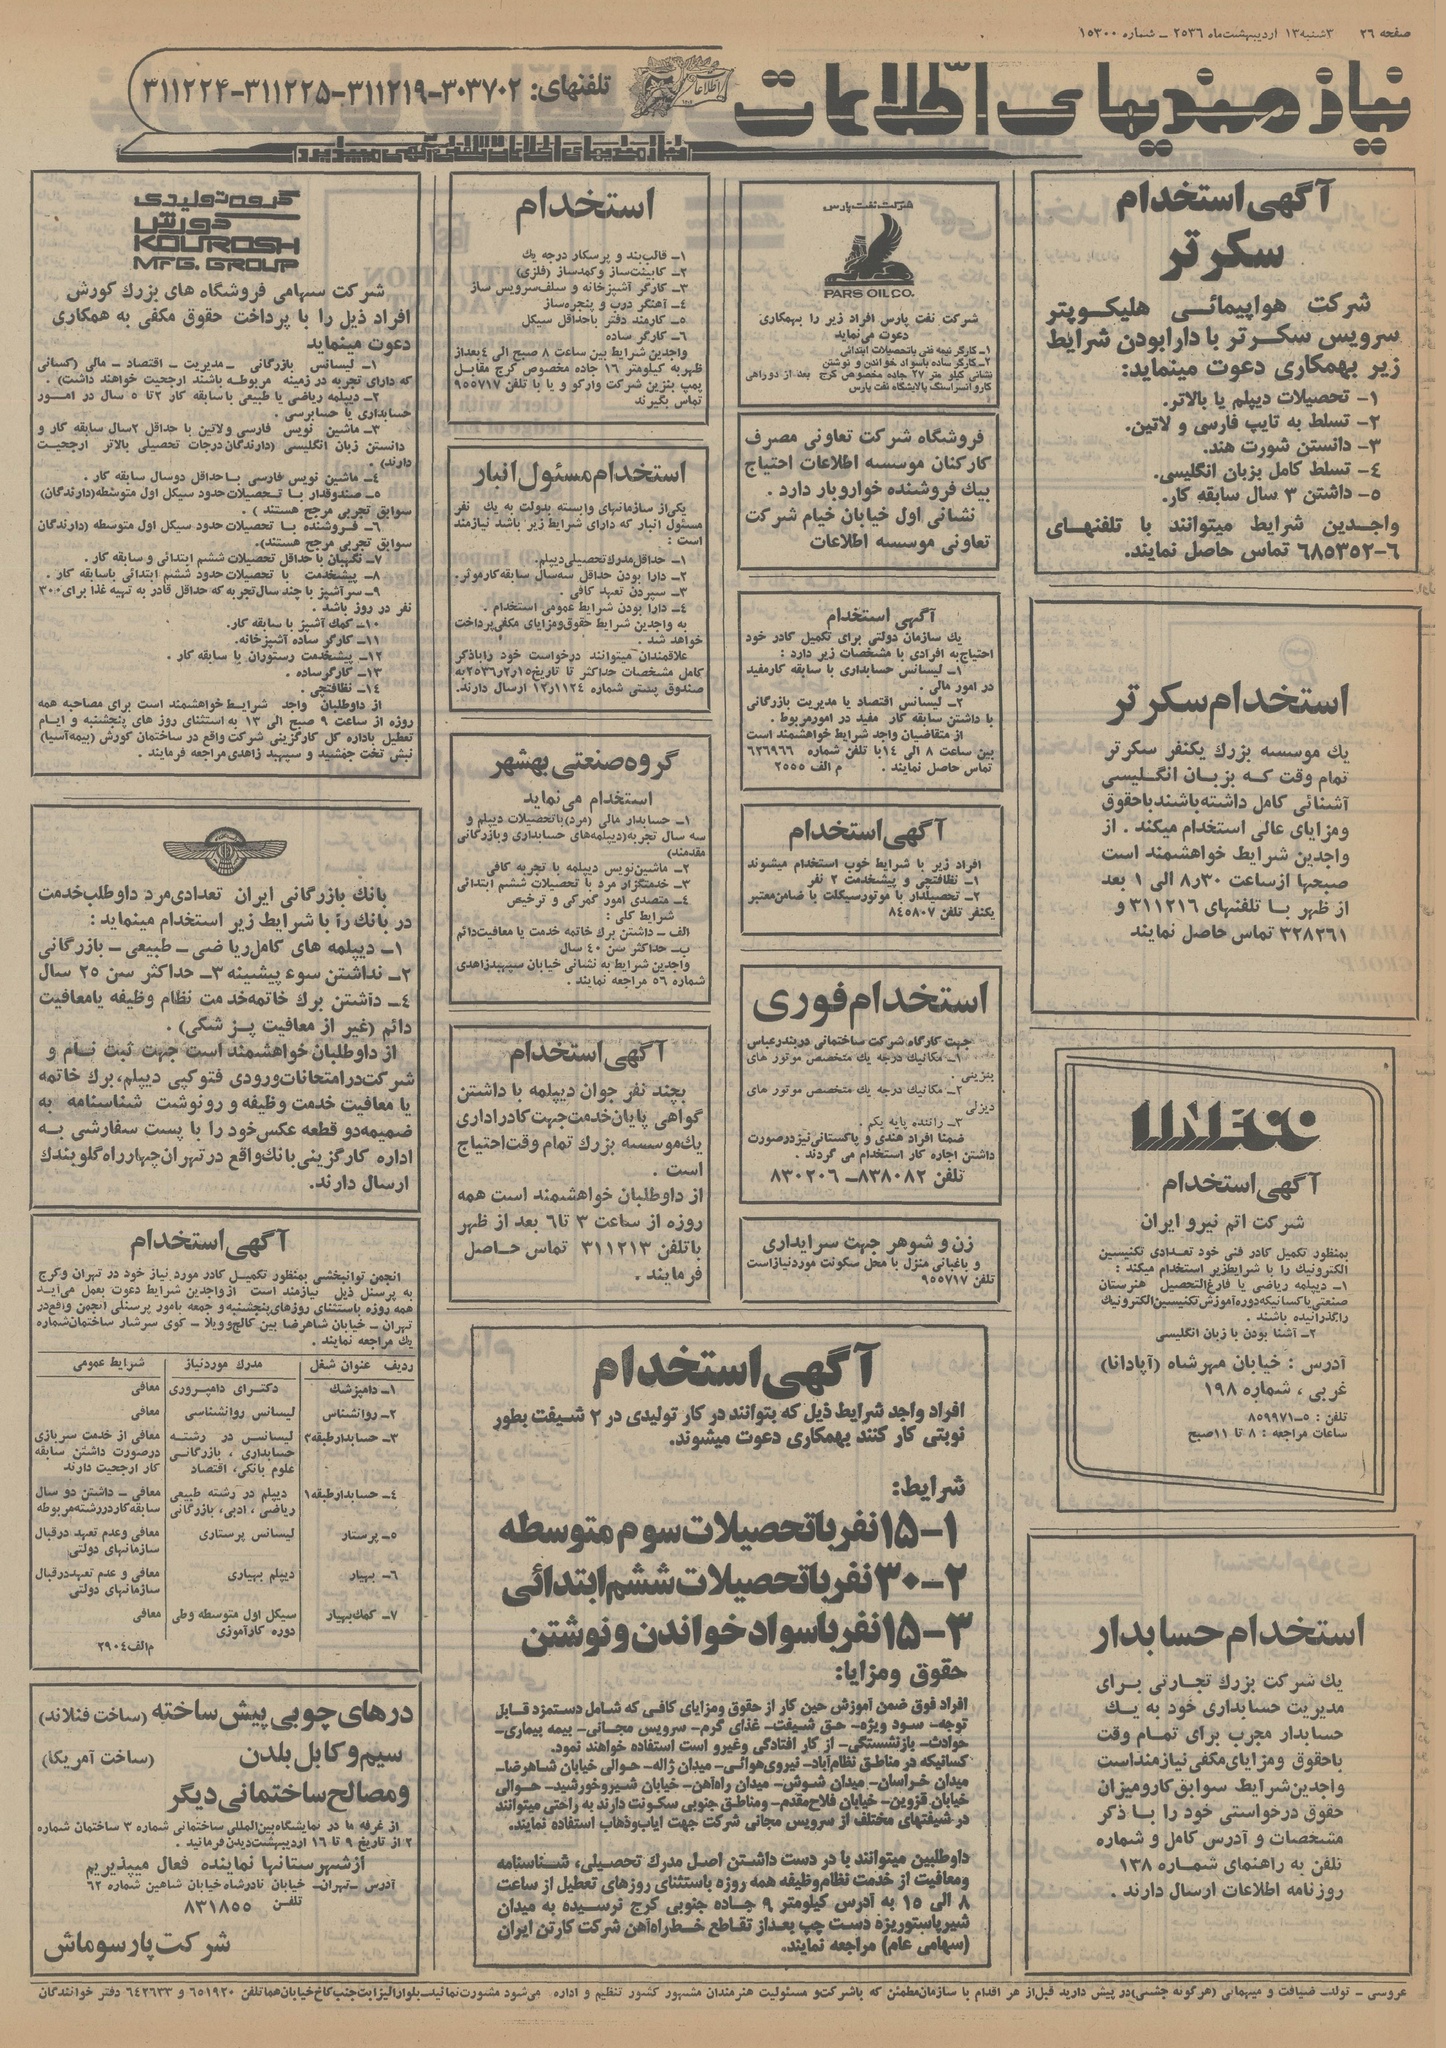 صفحه ۲۶
۳شنبه ۱۳ اردیبهشت ماه ۲۵۳۶ ـ شماره ۱۵۳۰۰
نیازمندیهای اطلاعات
تلفنهای: ۳۰۳۷۰۲-۳۱۱۲۱۹-۳۱۱۲۲۵-۳۱۱۲۲۴
نیازمندیهای اطلاعات تلفنی آگهی میپذیرد
آگهی استخدام
سکرتر
شرکت هواپیمائی هلیکوپتر
سرویس سکرتر با دارا بودن شرایط
زیر بهمکاری دعوت مینماید:
۱- تحصیلات دیپلم یا بالاتر.
۲- تسلط به تایپ فارسی و لاتین.
۳- دانستن شورت هند.
۴- تسلط کامل بزبان انگلیسی.
۵- داشتن ۳ سال سابقه کار.
واجدین شرایط میتوانند با تلفنهای
۶-۶۸۵۳۵۲ تماس حاصل نمایند.
استخدام سکرتر
یك موسسه بزرك یکنفر سکرتر
تمام وقت که بزبان انگلیسی
آشنائی کامل داشته باشند باحقوق
ومزایای عالی استخدام میکند . از
واجدین شرایط خواهشمند است
صبحها از ساعت ۸٫۳۰ الی ۱ بعد
از ظهر با تلفنهای ۳۱۱۲۱۶ و
۳۲۸۲۶۱ تماس حاصل نمایند
UNECO
آگهی استخدام
شرکت اتم نیرو ایران
بمنظور تکمیل کادر فنی خود تعدادی تکنیسین
الکترونیك را با شرایطزیر استخدام میکند :
۱- دیپلمه ریاضی یا فارغ‌التحصیل هنرستان
صنعتی یا کسانیکه دوره آموزش تکنیسین الکترونیك
راگذرانیده باشند .
۲- آشنا بودن با زبان انگلیسی
آدرس : خیابان مهرشاه (آپادانا)
غربی ، شماره ۱۹۸
تلفن : ۵-۸۵۹۹۷۱
ساعات مراجعه : ۸ تا ۱۱صبح
استخدام حسابدار
یك شرکت بزرك تجارتی برای
مدیریت حسابداری خود به یك
حسابدار مجرب برای تمام وقت
باحقوق ومزایای مکفی نیازمنداست
واجدین شرایط سوابق کارومیزان
حقوق درخواستی خود را با ذکر
مشخصات و آدرس کامل و شماره
تلفن به راهنمای شماره ۱۳۸
روزنامه اطلاعات ارسال دارند .
شرکت نفت پارس
PARS OIL CO.
شرکت نفت پارس افراد زیر را بهمکاری
دعوت می‌نماید
۱ـ کارگر نیمه فنی باتحصیلات ابتدائی
۲ـ کارگر ساده باسواد خواندن و نوشتن
نشانی کیلو متر ۲۷ جاده مخصوص کرج بعد از دوراهی
کارو انسراسنگ پالایشگاه نفت پارس
فروشگاه شرکت تعاونی مصرف
کارکنان موسسه اطلاعات احتیاج
بیك فروشنده خواروبار دارد .
نشانی اول خیابان خیام شرکت
تعاونی موسسه اطلاعات
آگهی استخدام
یك سازمان دولتی برای تکمیل کادر خود
احتیاج به افرادی با مشخصات زیر دارد :
۱ـ لیسانس حسابداری با سابقه کارمفید
در امور مالی .
۲ـ لیسانس اقتصاد یا مدیریت بازرگانی
با داشتن سابقه کار مفید در امورمربوط .
از متقاضیان واجد شرایط خواهشمند است
بین ساعت ۸ الی ۱۴ با تلفن شماره ۶۲۶۹۶۶
تماس حاصل نمایند . م الف ۲۵۵۵
آگهی استخدام
افراد زیر با شرایط خوب استخدام میشوند
۱ـ نظافتچی و پیشخدمت ۲ نفر
۲ـ تحصیلدار با موتورسیکلت یا ضامن‌معتبر
یکنفر تلفن ۸۴۵۸۰۷
استخدام فوری
جهت کارگاه شرکت ساختمانی دربندرعباس
۱ـ مکانیك درجه یك متخصص موتور های
بنزینی .
۲ـ مکانیك درجه یك متخصص موتور های
دیزلی
۳ـ راننده پایه یکم .
ضمنا افراد هندی و پاکستانی نیزدرصورت
داشتن اجازه کار استخدام می گردند .
تلفن ۸۳۸۰۸۲ـ ۸۳۰۲۰۶
زن و شوهر جهت سرایداری
و باغبانی منزل با محل سکونت موردنیازاست
تلفن ۹۵۵۷۱۷
استخدام
۱ـ قالب‌بند و پرسکار درجه یك
۲ـ کابینت‌ساز وکمدساز (فلزی)
۳ـ کارگر آشپزخانه و سلف‌سرویس ساز
۴ـ آهنگر درب و پنجره‌ساز
۵ـ کارمند دفتر باحداقل سیکل
۶ـ کارگر ساده
واجدین شرایط بین ساعت ۸ صبح الی ۴بعداز
ظهربه کیلومتر ۱۶ جاده مخصوص کرج مقابل
پمپ بنزین شرکت وارکو و یا با تلفن ۹۵۵۷۱۷
تماس بگیرند
استخدام مسئول انبار
یکی‌از سازمانهای وابسته بدولت به یك نفر
مسئول انبار که دارای شرایط زیر باشد نیازمند
است :
۱ـ حداقل‌مدرك‌تحصیلی‌دیپلم.
۲ـ دارا بودن حداقل سه‌سال سابقه‌کارموثر.
۳ـ سپردن تعهد کافی .
۴ـ دارا بودن شرایط عمومی استخدام .
به واجدین شرایط حقوق‌ومزایای مکفی‌پرداخت
خواهد شد .
علاقمندان میتوانند درخواست خود راباذکر
کامل مشخصات حداکثر تا تاریخ۲۵۳۶٫۲٫۱۵به
صندوق پستی شماره ۱۲٫۱۱۲۴ ارسال دارند.
گروه صنعتی بهشهر
استخدام می نماید
۱ـ حسابدار مالی (مرد)باتحصیلات دیپلم و
سه سال تجربه(دیپلمه‌های حسابداری وبازرگانی
مقدمند)
۲ـ ماشین‌نویس دیپلمه با تجربه کافی
۳ـ خدمتگزار مرد با تحصیلات ششم ابتدائی
۴ـ متصدی امور گمرکی و ترخیص
شرایط کلی :
الف ـ داشتن برك خاتمه خدمت یا معافیت‌دائم
ب ـ حداکثر سن ۴۰ سال
واجدین شرایط به نشانی خیابان سپهبدزاهدی
شماره ۵۶ مراجعه نمایند .
آگهی استخدام
بچند نفر جوان دیپلمه با داشتن
گواهی پایان خدمت جهت کادر اداری
یك موسسه بزرك تمام وقت احتیاج
است .
از داوطلبان خواهشمند است همه
روزه از ساعت ۳ تا ۶ بعد از ظهر
با تلفن ۳۱۱۲۱۳ تماس حاصل
فرمایند .
آگهی استخدام
افراد واجد شرایط ذیل که بتوانند در کار تولیدی در ۲ شیفت بطور
نوبتی کار کنند بهمکاری دعوت میشوند.
شرایط:
۱-۱۵ نفر با تحصیلات سوم متوسطه
۲-۳۰ نفر با تحصیلات ششم ابتدائی
۳-۱۵ نفر باسواد خواندن و نوشتن
حقوق ومزایا:
افراد فوق ضمن آموزش حین کار از حقوق ومزایای کافی که شامل دستمزد قابل
توجه- سود ویژه- حق شیفت- غذای گرم- سرویس مجانی- بیمه بیماری-
حوادث- بازنشستگی- از کار افتادگی وغیرو است استفاده خواهند نمود.
کسانیکه در مناطق نظام‌آباد- نیروی‌هوائی- میدان ژاله- حوالی خیابان شاهرضا-
میدان خراسان- میدان شوش- میدان راه‌آهن- خیابان شیروخورشید- حوالی
خیابان قزوین- خیابان فلاح‌مقدم- ومناطق جنوبی سکونت دارند به راحتی میتوانند
در شیفتهای مختلف از سرویس مجانی شرکت جهت ایاب‌وذهاب استفاده نمایند.
داوطلبین میتوانند با در دست داشتن اصل مدرك تحصیلی، شناسنامه
ومعافیت از خدمت نظام‌وظیفه همه روزه باستثنای روزهای تعطیل از ساعت
۸ الی ۱۵ به آدرس کیلومتر ۹ جاده جنوبی کرج نرسیده به میدان
شیرپاستوریزه دست چپ بعداز تقاطع خط‌راه‌آهن شرکت کارتن ایران
(سهامی عام) مراجعه نمایند.
گروه تولیدی
کورش
KOUROSH
MFG. GROUP
شرکت سهامی فروشگاه های بزرك کورش
افراد ذیل را با پرداخت حقوق مکفی به همکاری
دعوت مینماید
۱ـ لیسانس بازرگانی ـ مدیریت ـ اقتصاد ـ مالی (کسانی
که دارای تجربه در زمینه مربوطه باشند ارجحیت خواهند داشت) .
۲ـ دیپلمه ریاضی یا طبیعی باسابقه کار ۲تا ۵ سال در امور
حسابداری یا حسابرسی .
۳ـ ماشین نویس فارسی ولاتین با حداقل ۲سال سابقه کار و
دانستن زبان انگلیسی (دارندگان درجات تحصیلی بالاتر ارجحیت
دارند) .
۴ـ ماشین نویس فارسی باحداقل دوسال سابقه کار .
۵ـ صندوقدار با تحصیلات حدود سیکل اول متوسطه(دارندگان
سوابق تجربی مرجح هستند ) .
۶ـ فروشنده با تحصیلات حدود سیکل اول متوسطه (دارندگان
سوابق تجربی مرجح هستند).
۷ـ نگهبان با حداقل تحصیلات ششم ابتدائی و سابقه کار .
۸ـ پیشخدمت با تحصیلات حدود ششم ابتدائی باسابقه کار .
۹ـ سرآشپز با چند سال‌تجربه که حداقل قادر به تهیه غذا برای۳۰۰
نفر در روز باشد .
۱۰ـ کمك آشپز با سابقه کار.
۱۱ـ کارگر ساده آشپزخانه.
۱۲ـ پیشخدمت رستوران با سابقه کار .
۱۳ـ کارگرساده .
۱۴ـ نظافتچی .
از داوطلبان واجد شرایط خواهشمند است برای مصاحبه همه
روزه از ساعت ۹ صبح الی ۱۳ به استثنای روز های پنجشنبه و ایام
تعطیل باداره کل کارگزینی شرکت واقع در ساختمان کورش (بیمه‌آسیا)
نبش تخت جمشید و سپهبد زاهدی مراجعه فرمایند .
بانك بازرگانی ایران تعدادی مرد داوطلب خدمت
در بانك را با شرایط زیر استخدام مینماید :
۱ـ دیپلمه های کامل ریاضی ـ طبیعی ـ بازرگانی
۲ـ نداشتن سوء پیشینه ۳ـ حداکثر سن ۲۵ سال
۴ـ داشتن برك خاتمه خدمت نظام وظیفه یا معافیت
دائم (غیر از معافیت پزشگی) .
از داوطلبان خواهشمند است جهت ثبت نام و
شرکت در امتحانات ورودی فتوکپی دیپلم، برك خاتمه
یا معافیت خدمت وظیفه و رونوشت شناسنامه به
ضمیمه دو قطعه عکس خود را با پست سفارشی به
اداره کارگزینی بانك واقع در تهران چهارراه گلوبندك
ارسال دارند.
آگهی استخدام
انجمن توانبخشی بمنظور تکمیل کادر مورد نیاز خود در تهران وکرج
به پرسنل ذیل نیازمند است ازواجدین شرایط دعوت بعمل می‌آید
همه روزه باستثنای روزهای‌پنجشنبه و جمعه بامور پرسنلی انجمن واقع‌در
تهران ـ خیابان شاهرضا بین کالج‌وویلا ـ کوی سرشار ساختمان‌شماره
یك مراجعه نمایند .
ردیف عنوان شغل مدرك موردنیاز شرایط عمومی
۱ـ دامپزشك دکترای دامپروری معافی
۲ـ روانشناس لیسانس روانشناسی معافی
۳ـ حسابدارطبقه۲ لیسانس در رشته معافی از خدمت سربازی
حسابداری ، بازرگانی درصورت داشتن سابقه
علوم بانکی، اقتصاد کار ارجحیت دارند
۴ـ حسابدارطبقه۱ دیپلم در رشته طبیعی معافی ـ داشتن دو سال
ریاضی ، ادبی، بازرگانی سابقه‌کاردررشته‌مربوطه
۵ـ پرستار لیسانس پرستاری معافی وعدم تعهد درقبال
سازمانهای دولتی
۶ـ بهیار دیپلم بهیاری معافی و عدم تعهددرقبال
سازمانهای دولتی
۷ـ کمك‌بهیار سیکل اول متوسطه وطی معافی
دوره کارآموزی
م‌الف۲۹۰۴
درهای چوبی پیش ساخته (ساخت فنلاند)
سیم و کابل بلدن (ساخت آمریکا)
و مصالح ساختمانی دیگر
از غرفه ما در نمایشگاه‌بین‌المللی ساختمانی شماره ۳ ساختمان شماره
۲ از تاریخ ۹ تا ۱۶ اردیبهشت‌دیدن‌فرمائید .
از شهرستانها نماینده فعال میپذیریم
آدرس ـ تهران- خیابان نادرشاه خیابان شاهین شماره ۶۲
تلفن ۸۳۱۸۵۵
شرکت پارسوماش
عروسی ـ تولد ـ ضیافت و میهمانی (هرگونه جشنی)در پیش دارید قبل‌از هر اقدام با سازمان‌مطمئن که باشرکت‌و مسئولیت هنرمندان مشهور کشور تنظیم و اداره می‌شود مشورت‌نمائید-بلوارالیزابت‌جنب‌کاخ‌خیابان‌هما تلفن ۶۵۱۹۲۰ و ۶۴۲۶۳۳ دفتر خوانندگان